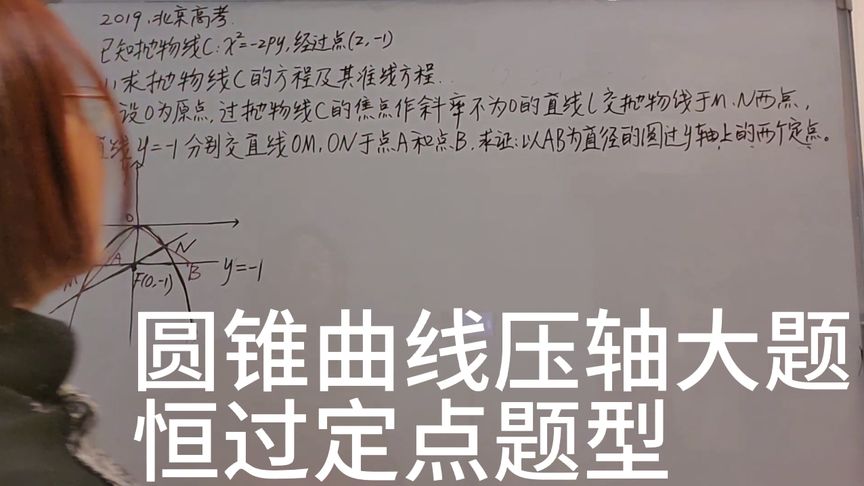 2019.北京高考.
已知抛物线C:x²=-2py,经过点(2,-1)
求抛物线C的方程及其准线方程.
设O为原点,过抛物线C的焦点作斜率不为0的直线l交抛物线于M.N两点,
直线y=-1分别交直线OM,ON于点A和点B.求证:以AB为直径的圆过y轴上的两个定点。
O
N
A
B
y=-1
M
F(0,-1)
圆锥曲线压轴大题
恒过定点题型